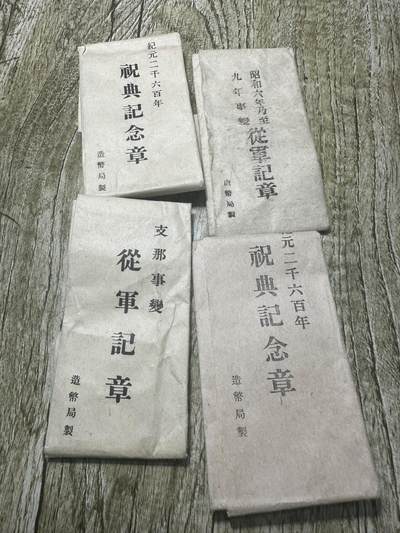 紀元二千六百年
祝典記念章
造幣局製
昭和六年乃至
九年事變
從軍記章
造幣局製
支那事變
從軍記章
造幣局製
紀元二千六百年
祝典記念章
造幣局製